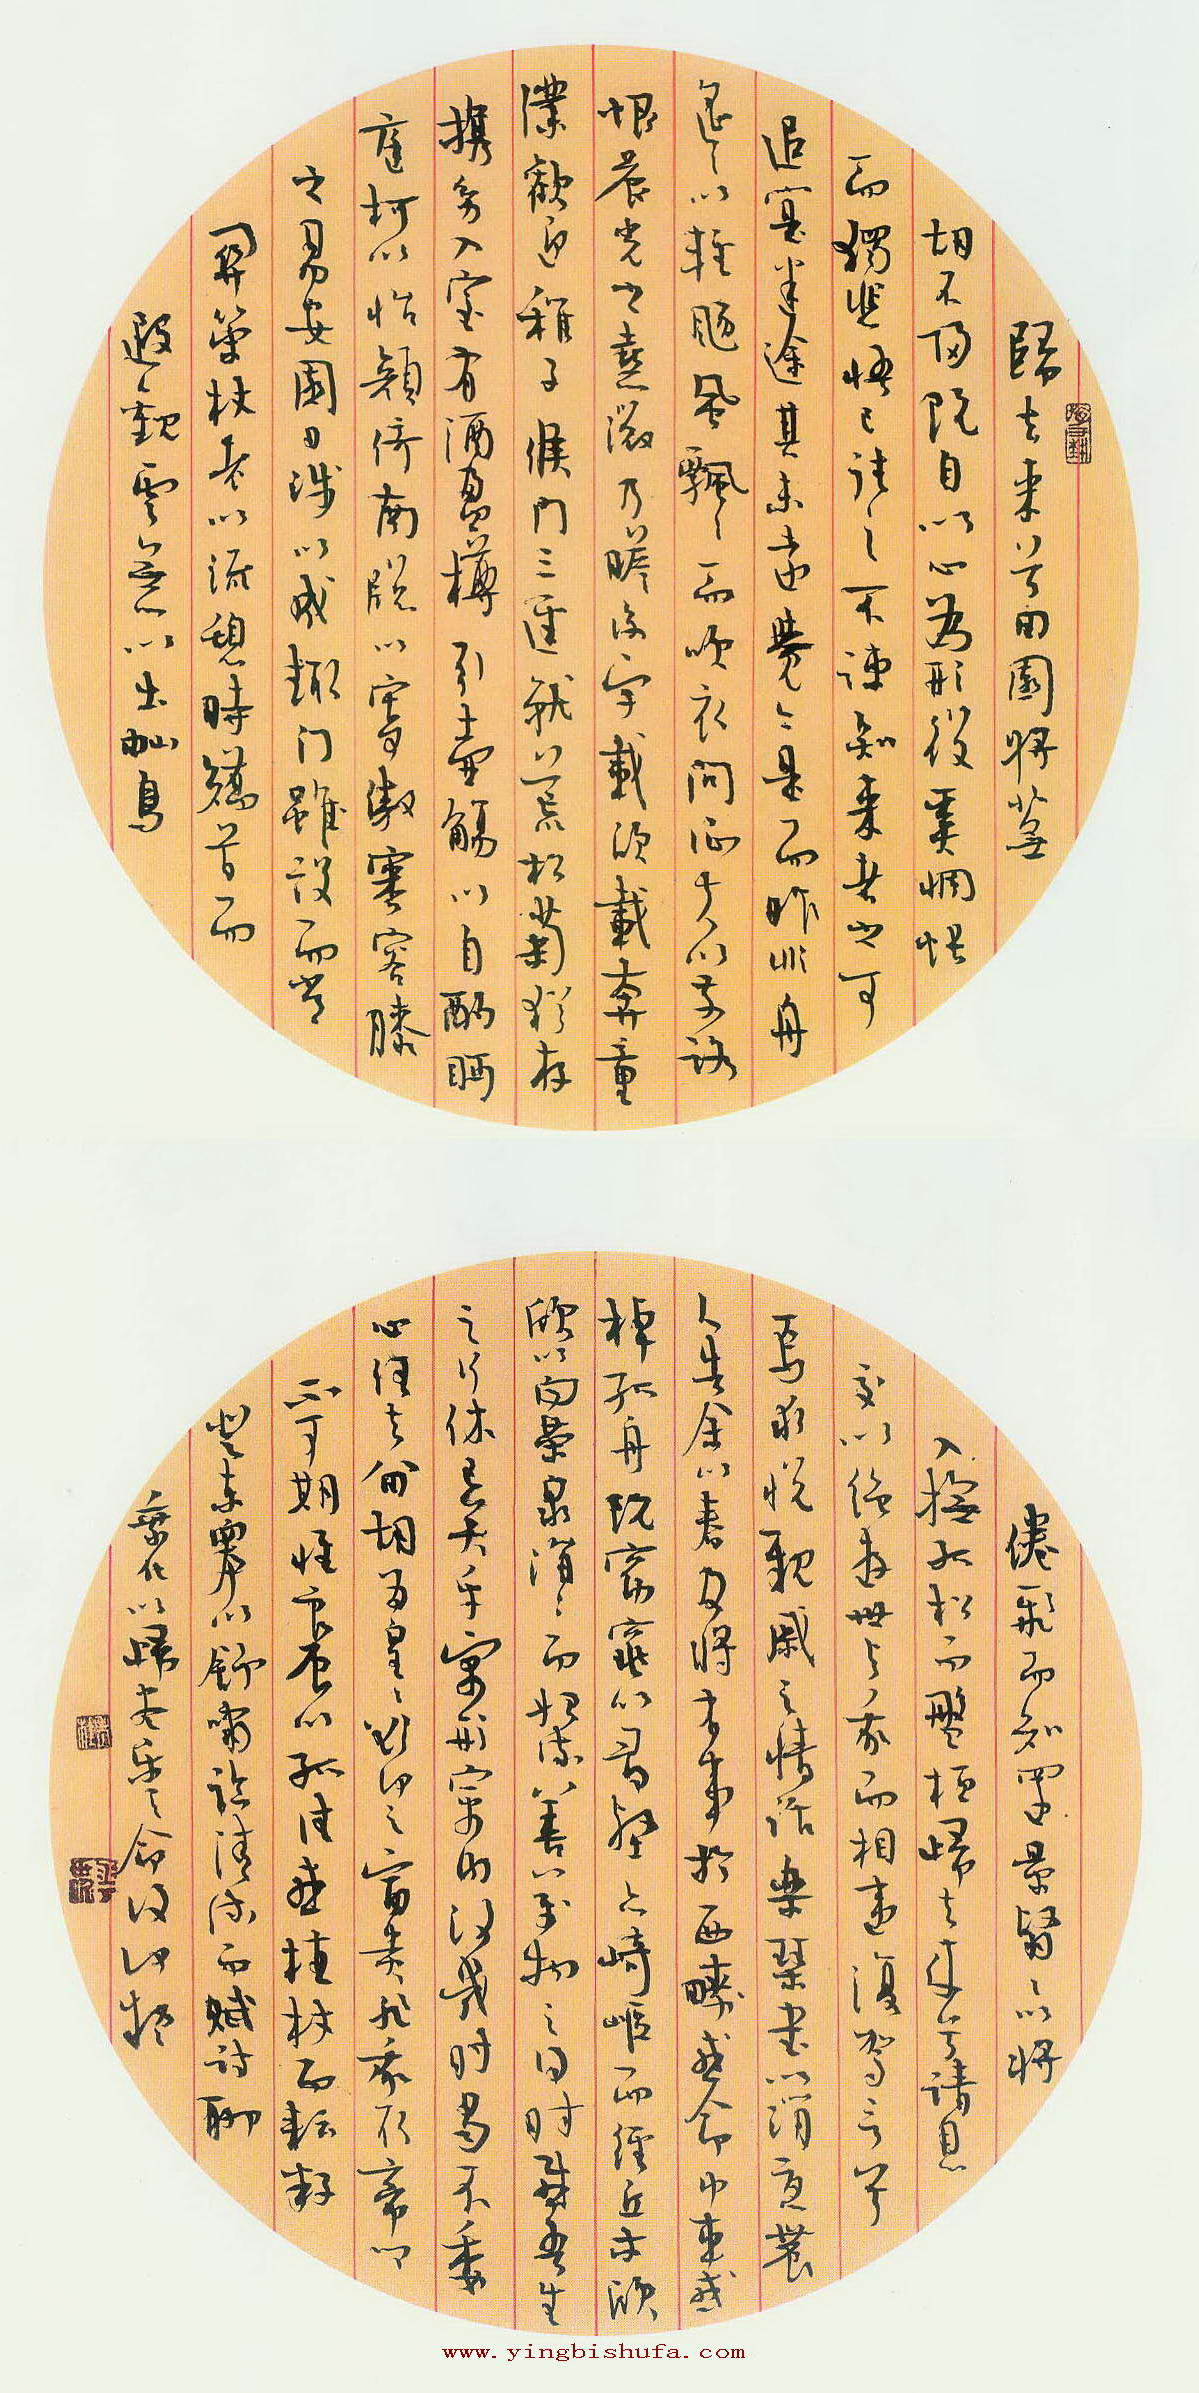 歸去来兮田園將蕪
胡不歸既自以心為形役奚惆悵
而獨悲悟已往之不諫知来者之可
追寔迷途其未遠覺今是而昨非舟
遥〻以輕颺風飄〻而吹衣問征夫以前路
恨晨光之熹微乃瞻衡宇載欣載奔童
僕歡迎稚子候門三逕就荒松菊猶存
携幼入室有酒盈樽引壺觴以自酌眄
庭柯以怡顔倚南牕以寄傲審容膝
之易安園日涉以成趣门雖設而常
関策扶老以流憩時矯首而
遐觀雲無心以出岫鳥
倦飛而知還景翳〻以將
入撫孤松而盤桓歸去来兮請息
交以絶遊世与我而相違復駕言兮
焉求悦親戚之情話樂琴書以消憂農
人告余以春及將有事於西疇或命巾車或
棹孤舟既窈窕以尋壑亦崎嶇而經丘木欣
欣以向榮泉涓〻而始流善万物之得時感吾生
之行休已矣乎寓形宇内復幾时曷不委
心任去留胡為皇〻欲何之富貴非我願帝鄉
不可期懷良辰以孤往或植杖而耘耔
登東皋以舒嘯臨清流而賦詩聊
乘化以歸盡樂天命復何疑
www.yingbishufa.com